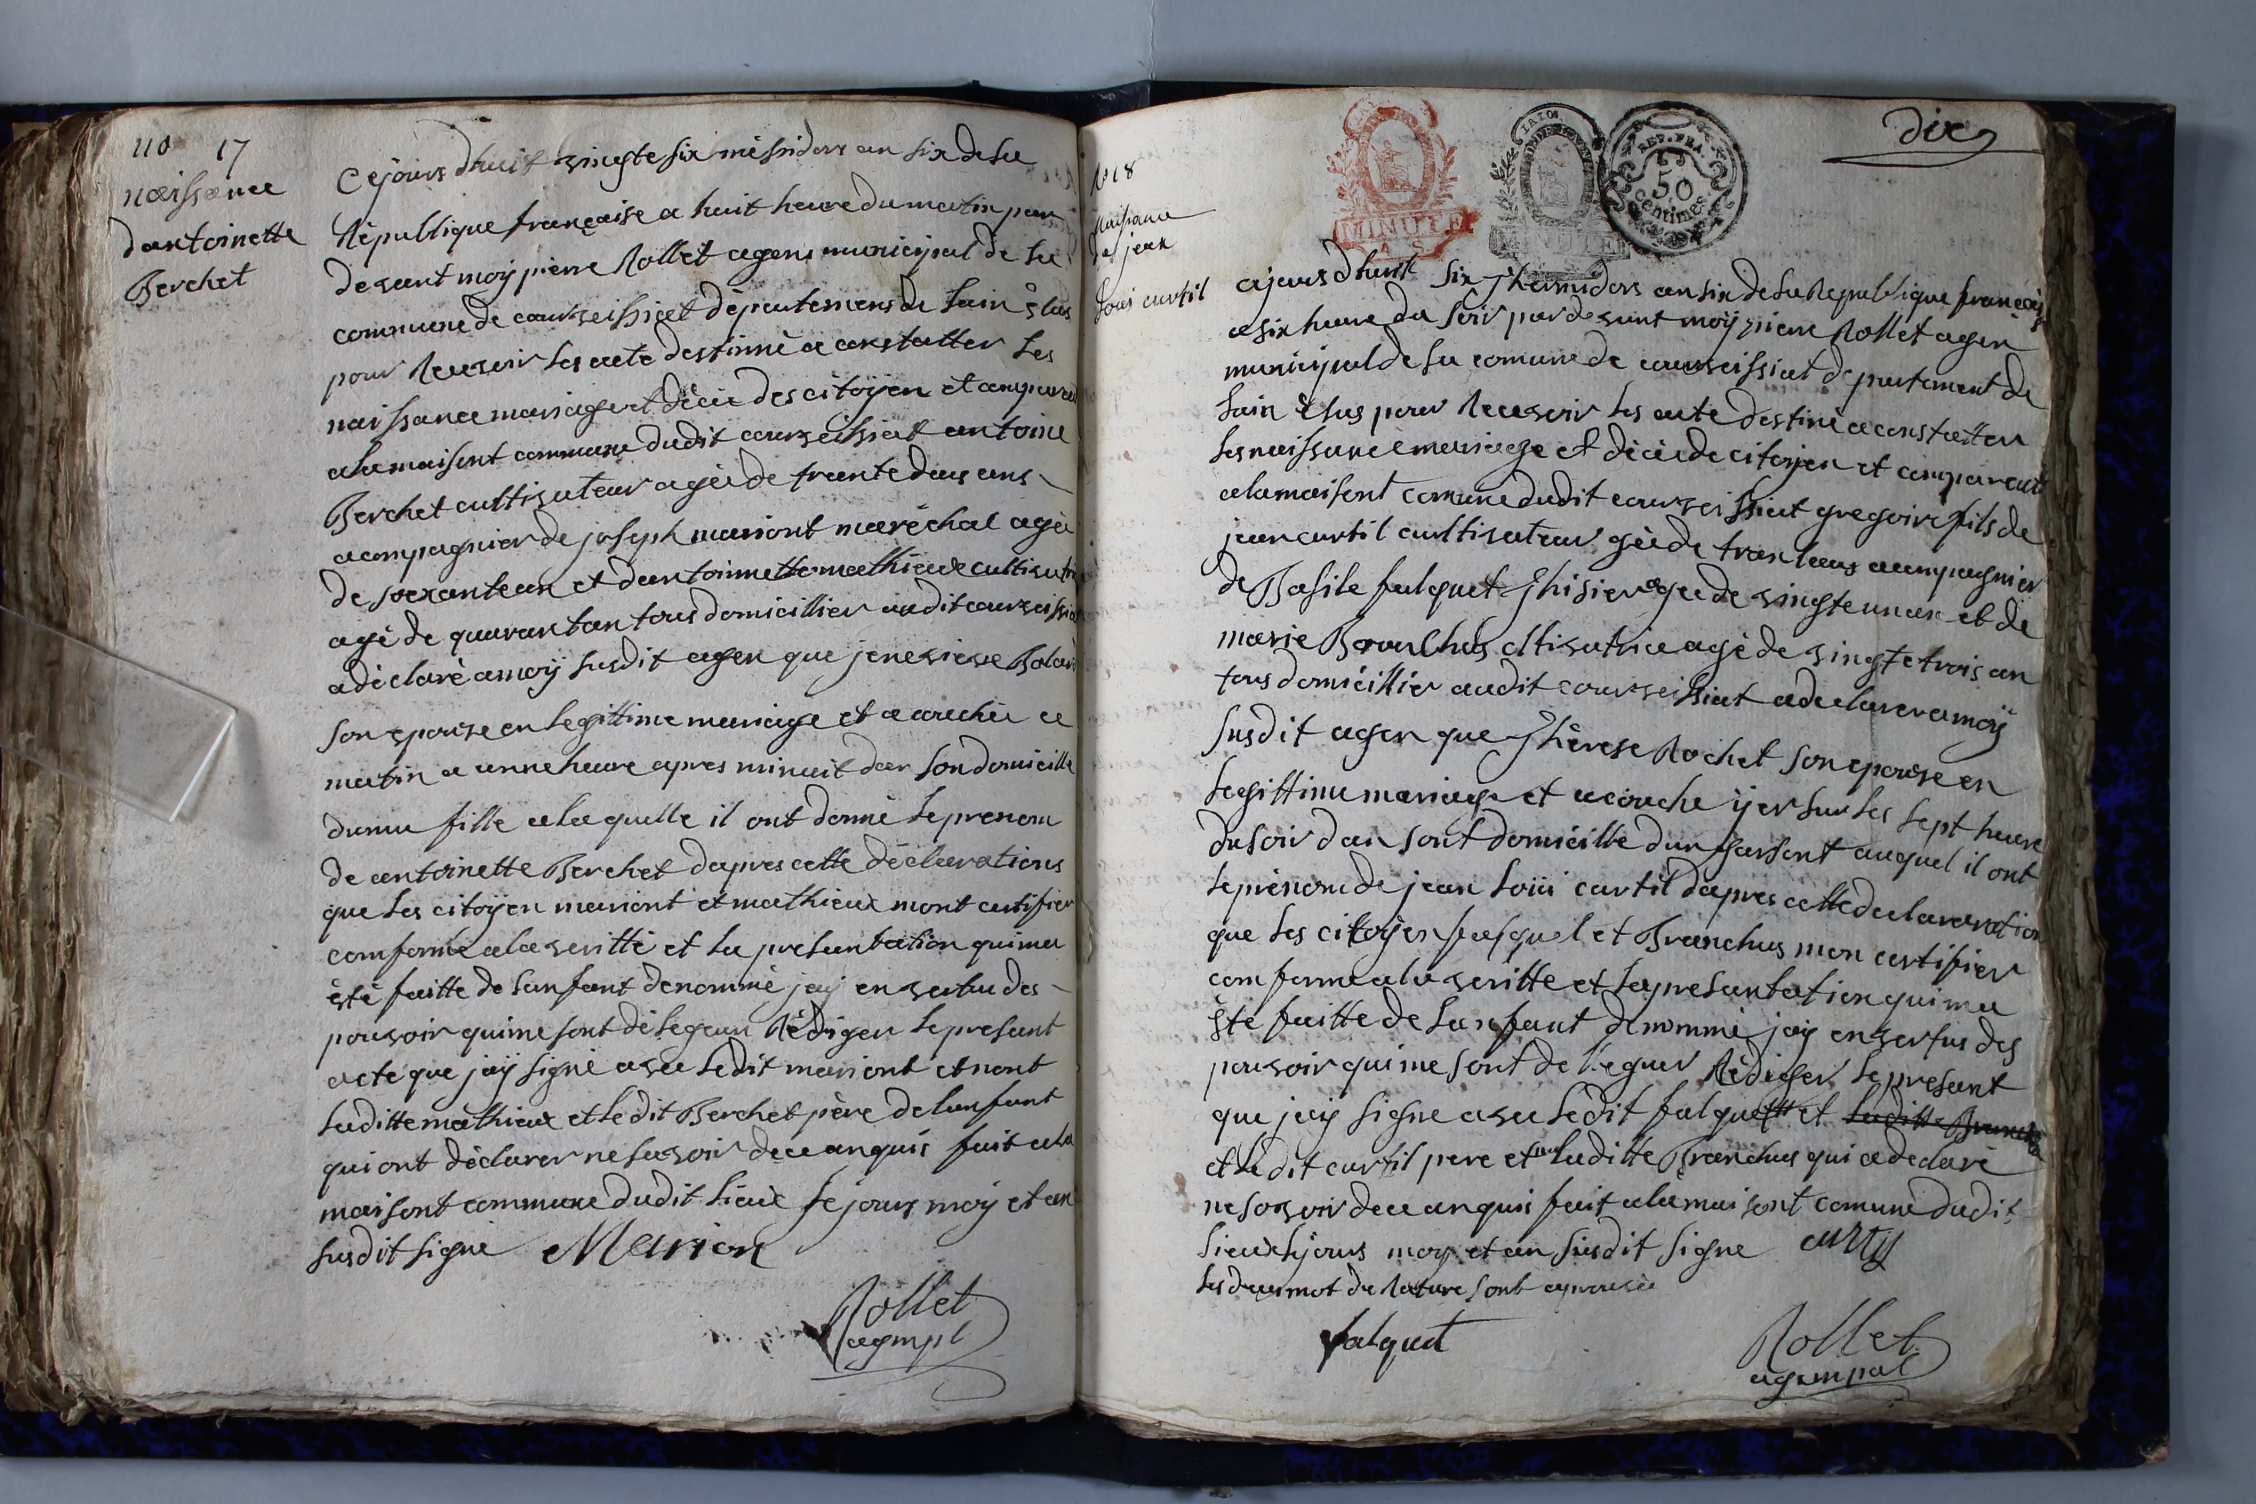 no 17
naissance
dantoinette
Berchet
Cejours dhuit vingte six messidors an six de la
République française a huit heure du matin par
devant moij pierre Rollet agens municipal de la
commune de courveissiat départemens de lain élus
pour Recevoir les acte destinné a constatter les
naissance mariage et décée des citoÿen et comparu
alamaisont commune dudit courveissiat antoine
Berchet cultivateur agée de trante deus ans
acompagnier de joseph mariont maréchal agée
de soexantean et dantoinnette mathieux cultivatri
agé de quarantan tous domicillier audit courveissiat
adéclaré amoij susdit agen que jenevieve
son epouse en legittime mariage et a couchée ce
matin a unne heure apres minuit dan son domicille
dunne fille alaquelle il ont donné le prenom
de antoinette Berchet dapres cette déclarations
que les citoÿen mariont et mathieux mont certifier
comforme alaveritté et la presantation quima
été faitte de lanfant denommé jaij en vertu des
pouvoir quime sont délegeur Rédiger le present
acte que jaÿ signé avec ledit mariont et nont
laditte mathieux et ledit Berchet père de lanfant
qui ont déclarer ne savoir dece anquis fait ala
maisont commune dudit lieux le jours moij et an
susdit signé Marion
Rollet
agmpl
dix
MINUTE
REP. FRA.
50
centimes
no 18
Naissance
de jean
Loui curtil
cejours dhuit six thermidors an six de la Republique français
a six heure du soir pardevant moij pierre Rollet agen
municipal de la comune de courveissiat département de
lain élus pour Recevoir les acte destiné a constatter
les naissance mariage et décée de citoijen et comparut
alamaisont comune dudit courveissiat gregoire fils de
jean curtil cultivateur gée de acompagnier
de Basile falquet agée de vingte unan et de
marie Branchus cltivatrice agé de vingte trois an
tous domicillier audit courveissiat adeclarer amoÿ
susdit agen que Thérese Rochet son epouse en
legittime mariage et acouche ÿer sur les sept heure
du soir dan sont domicille dun garsont auquel il ont
le prénom de jean Loüi curtil dapres cette declaration
que les citoÿen falquet et Branchus mon certifier
comforme ala veritte et la presantation quima
été faitte de lanfant denommé jaij en vertus des
pouvoir quime sont deleguer Rédiger le present
que jaÿ signe avec lédit falquett et laditte Branchu
et lédit curtil pere et non laditte Branchus qui a declaré
ne savoir dece anquis fait alamaisont comune dudit
lieux lejours moy et an susdit signe curty
les deus mot de Rature sont aprouvée
falquet
Rollet
agempal